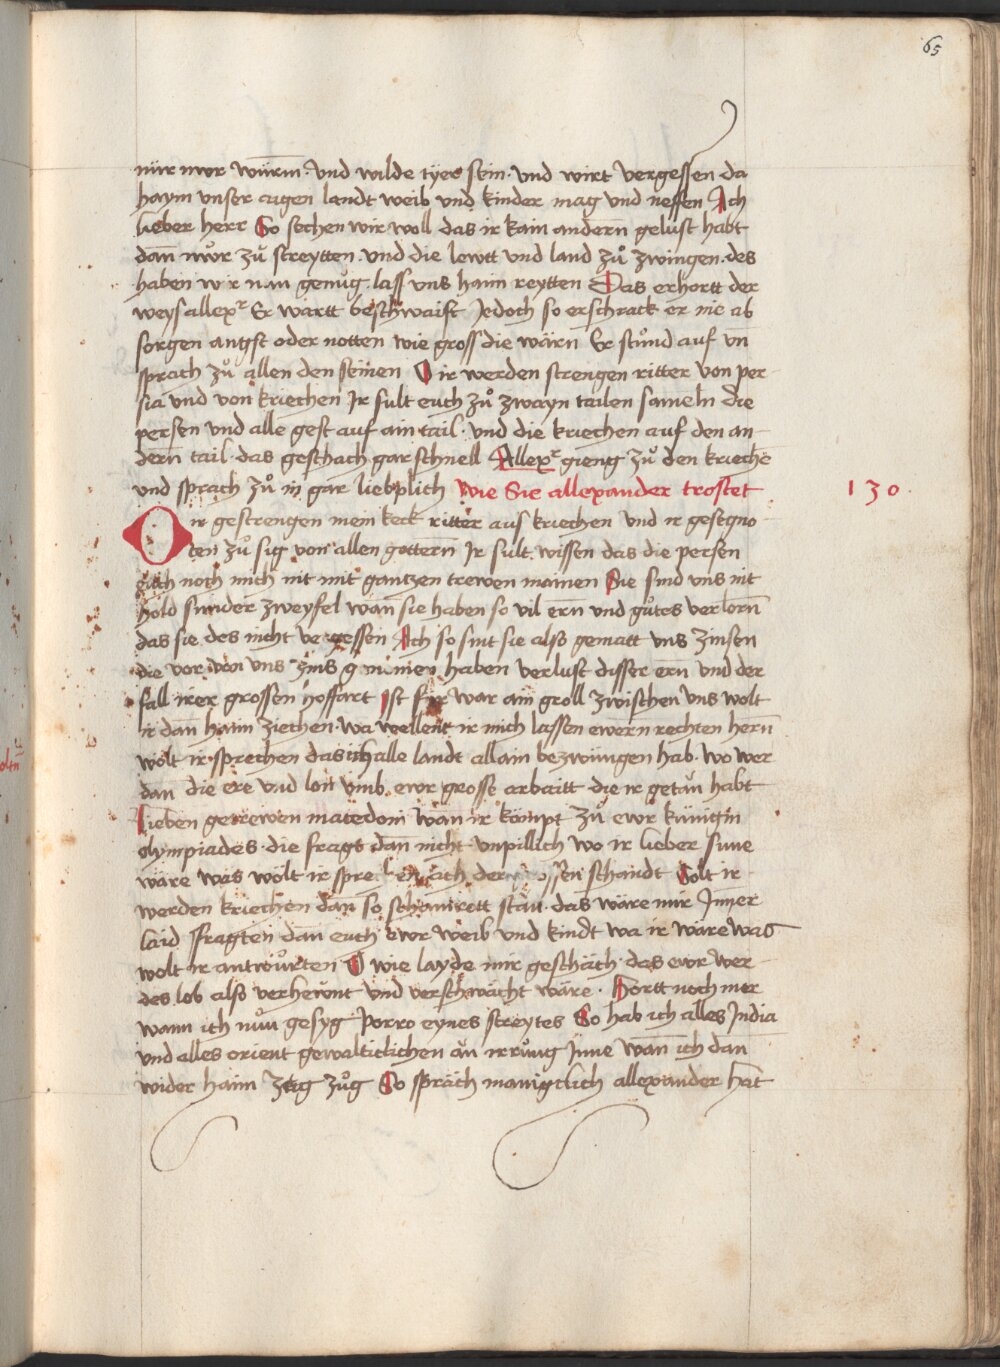 65
nür nwr würm· vnd wilde tyer sein· vnd wirt vergessen da
haym vnser aigen landt weib vnd kinder mag vnd neffen Ach
lieber herr So sechen wir woll das ir kain andern̄ gelust habt
dan̄ nwr zů streytten· vnd die lewtt vnd land zů zwingen· des
haben wir nun genůg· lass vns haim reytten Das erhortt der
weys allexr Er wartt beschwaift Jedoch so erschrack er nie ab
sorgen angst oder notten wie gross die wärn Er stůnd auf vn̄
sprach zů allen den seinen O ir werden strengen ritter von per
sia vnd von kriechen Jr sult euch zů zwayn tailen sameln die
persen vnd alle gest auf ain tail· vnd die kriechen auf den an
dern̄ tail· das geschach gar schnell Allexr gieng zů den krieche
vnd sprach zů in gar lieblich Wie Sie allexander trostet
130
O ir gestrengen mein keck ritter aus kriechen vnd ir gesegno
ten zů sig von allen gottern̄ Jr sult wissen das die persen
euch noch mich nit mit gantzen trewen mainen Sie sind vns nit
hold sunder zweyfel wan̄ sie haben so vil ern̄ vnd gůtes verlorn̄
das sie des nicht vergessen Ach so sint sie also gematt vns zinsen
die vor von vns zins haben verlust disser ern̄ vnd der
fall irer grossen hoffart Ist fur war ain groll zwischen vns wolt
ir dan̄ haim ziechen· wa wellent ir mich lassen ewern̄ rechten hern̄
wölt ir sprechen das ich alle landt allain bezwungen hab· wo wer
dan̄ die ere vnd lon vmb ewr grosse arbaitt die ir getan̄ habt
Lieben getrewen macedoni wan̄ ir kömpt zů ewr künigin
olympiades· die fragt dan̄ nicht vnpillich wo ir lieber sune
wäre was wölt ir sprechen ach der grossen schandt Solt ir
werden kriechen dan̄ so schamrett stan̄· das wäre mir Jmer
laid Fragten dan̄ euch ewr weib vnd kindt wa ir wäre was
wolt ir antwůrten O wie layde mir geschäch· das ewr wer
des lob also verhewnt vnd verschwächt wäre· Hortt noch mer
wann ich nůn gesyg Porro eynes streytes So hab ich alles India
vnd alles orient gewalticlichen an̄ irrůng Jnne Wan̄ ich dan̄
wider haim zůg So spräch maniglich allexander hat